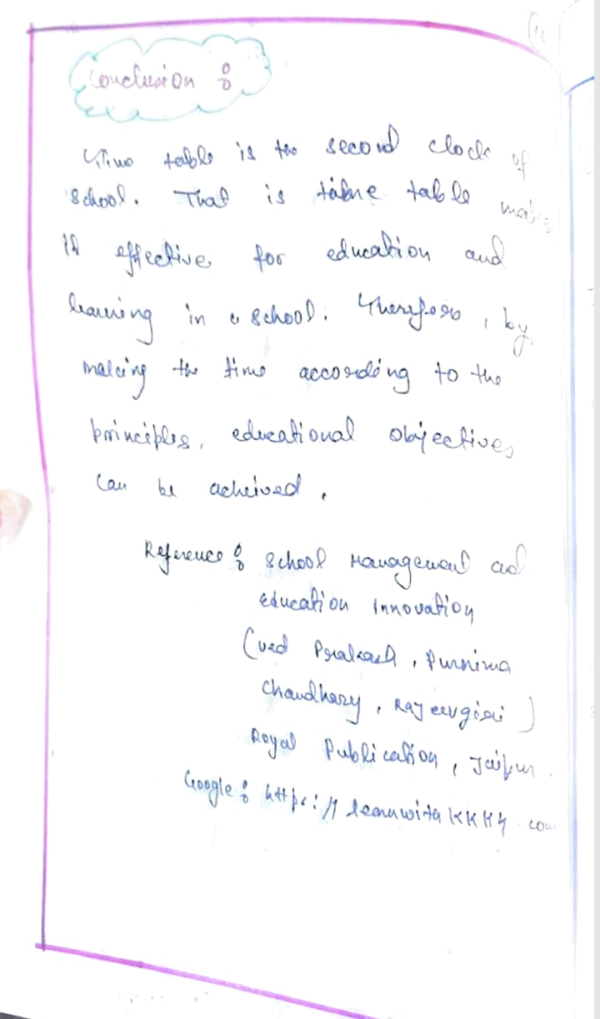 Conclusion :
Time table is the second clock of
school. That is time table makes
it effective for education and
learning in a school. Therefore, by
making the time according to the
principles, educational objectives
can be acheived.
Reference : School Management and
education Innovation
(ved Prakash, Purnima
Chaudhary, Rajeevgiri)
Royal Publication, Jaipur.
Google : https://